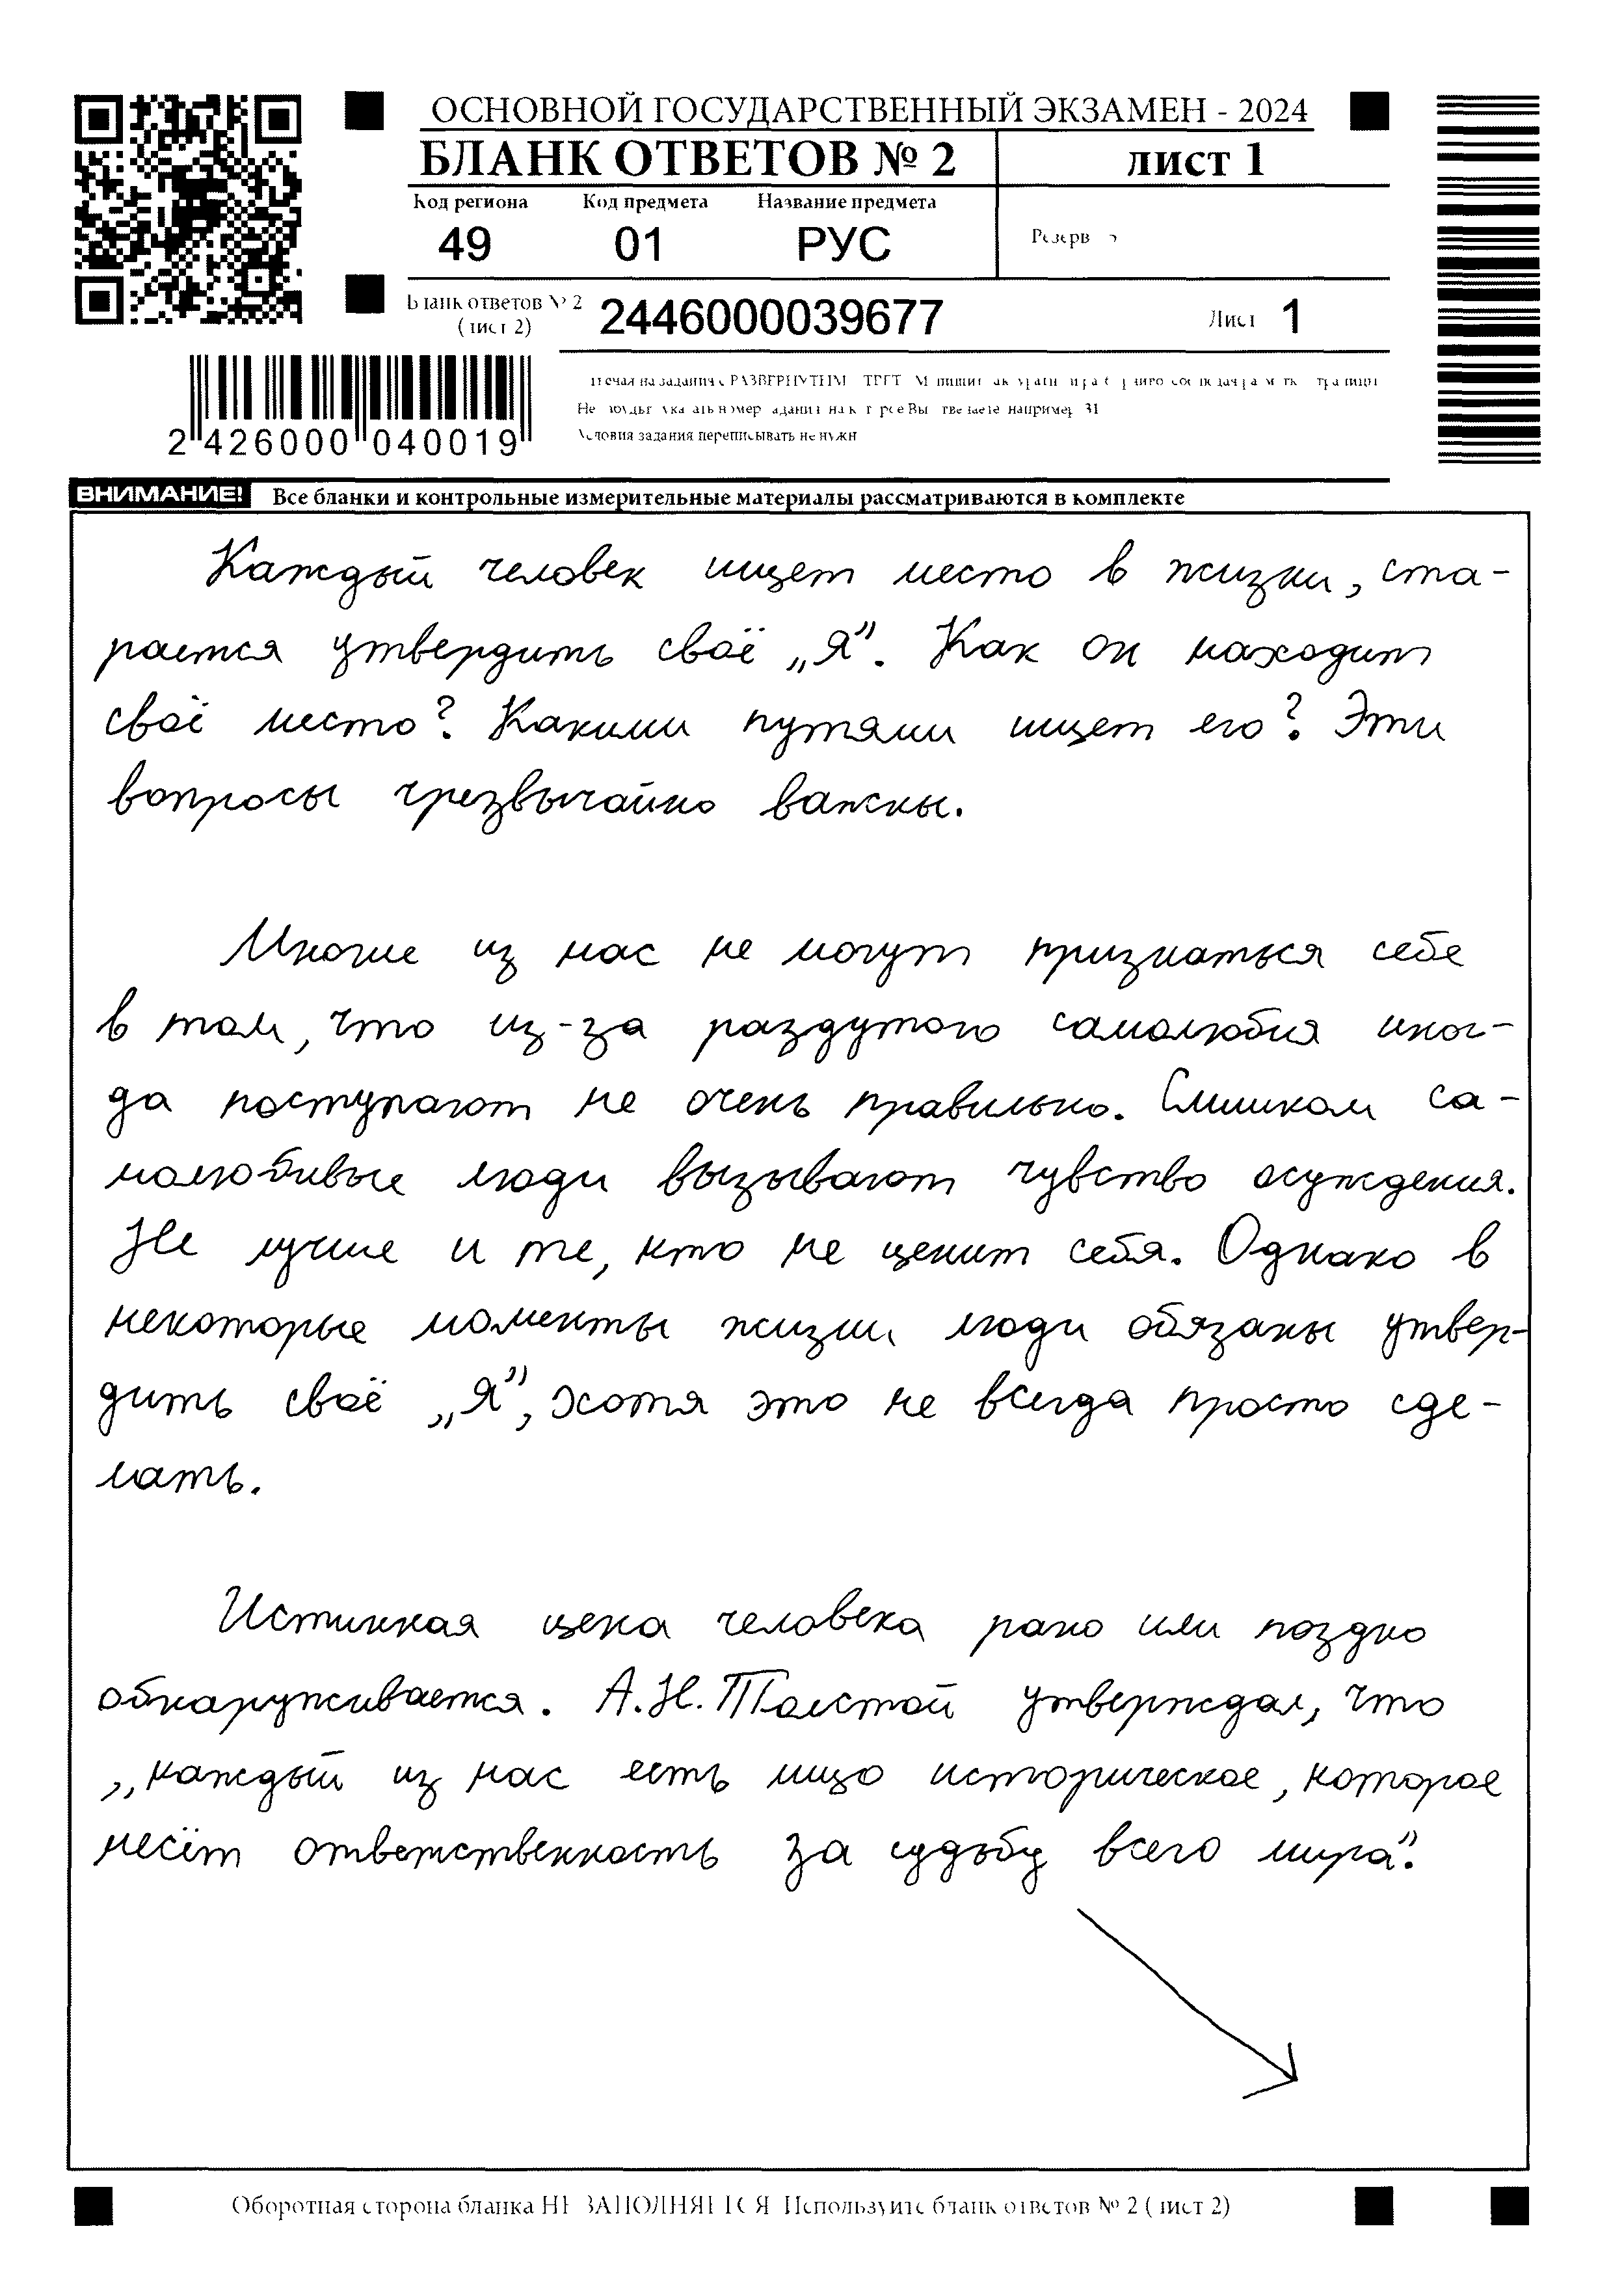 ОСНОВНОЙ ГОСУДАРСТВЕННЫЙ ЭКЗАМЕН - 2024
БЛАНК ОТВЕТОВ № 2
лист 1
Код региона Код предмета Название предмета
49 01 РУС
Резерв
Бланк ответов № 2
(лист 2)
2446000039677
Лист 1
2 426000 040019
Условия задания переписывать не нужн
ВНИМАНИЕ! Все бланки и контрольные измерительные материалы рассматриваются в комплекте
Каждый человек ищет место в жизни, ста-
рается утвердить своё „Я”. Как он находит
своё место? Какими путями ищет его? Эти
вопросы чрезвычайно важны.
Многие из нас не могут признаться себе
в том, что из-за раздутого самолюбия иног-
да поступают не очень правильно. Слишком са-
молюбивые люди вызывают чувство осуждения.
Не лучше и те, кто не ценит себя. Однако в
некоторые моменты жизни люди обязаны утвер-
дить своё „Я”, хотя это не всегда просто сде-
лать.
Истинная цена человека рано или поздно
обнаруживается. А.Н.Толстой утверждал, что
„каждый из нас есть лицо историческое, которое
несёт ответственность за судьбу всего мира”.
Оборотная сторона бланка НЕ ЗАПОЛНЯЕТСЯ Используите бланк ответов № 2 (лист 2)